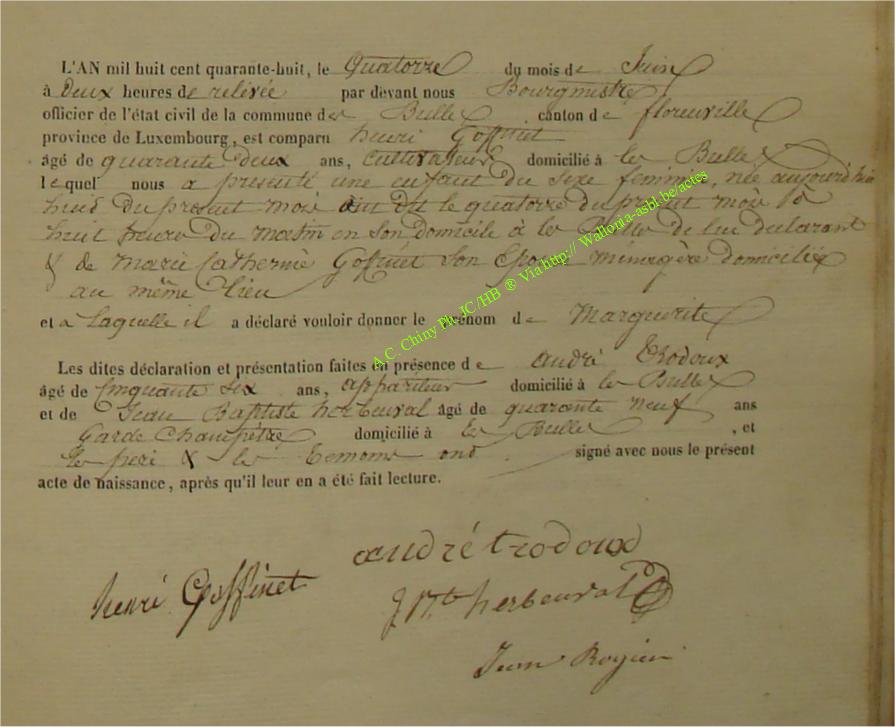 L'AN mil huit cent quarante-huit, le Quatorze du mois de Juin
à Deux heures de relevée par devant nous Bourgmestre
officier de l'état civil de la commune des Bulles, canton de florenville
province de Luxembourg, est comparu henri Goffinet
âgé de quarante deux ans, Cultivateur domicilié à les Bulles
lequel nous a présenté une enfant du sexe feminin, née aujourd'hui
du présent mois le quatorze du présent mois à
huit heure du matin en son domicile à les Bulles de lui declarant
& de Marie Catherine Goffinet Son Epouse Ménagère domiciliée
au même lieu
et a Laquelle il a déclaré vouloir donner le prénom de Marguerite
Les dites déclaration et présentation faites en présence de andré Trodoux
âgé de Cinquante Six ans, appariteur domicilié à les Bulles
et de Jean Baptiste herbeuval âgé de quarante neuf ans
Garde Champêtre domicilié à les Bulles, et
les pere & les temoins ont signé avec nous le présent
acte de naissance, après qu'il leur en a été fait lecture.
andré trodoux
henri Goffinet
J Bte herbeuval
Jean
A.C. Chiny Ph. JC/HB ® Via http:// Wallonia-asbl.be/actes